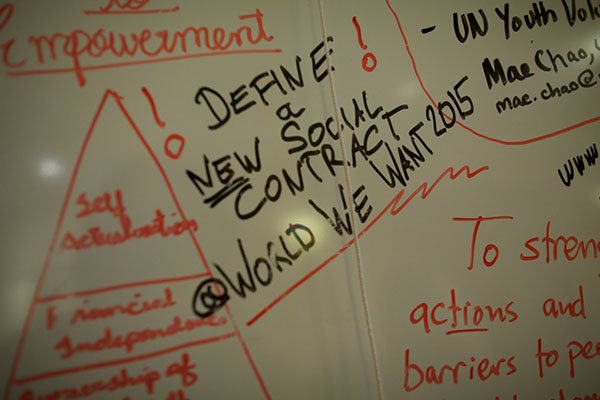 to
Empowerment
Self
actualization
Financial
Independence
Ownership of
! DEFINE: !
a
NEW SOCIAL
CONTRACT
@WORLD WE WANT 2015
- UN Youth Volu
Mae Chao,
mae.chao@
www
To stren
actions and
barriers to pe